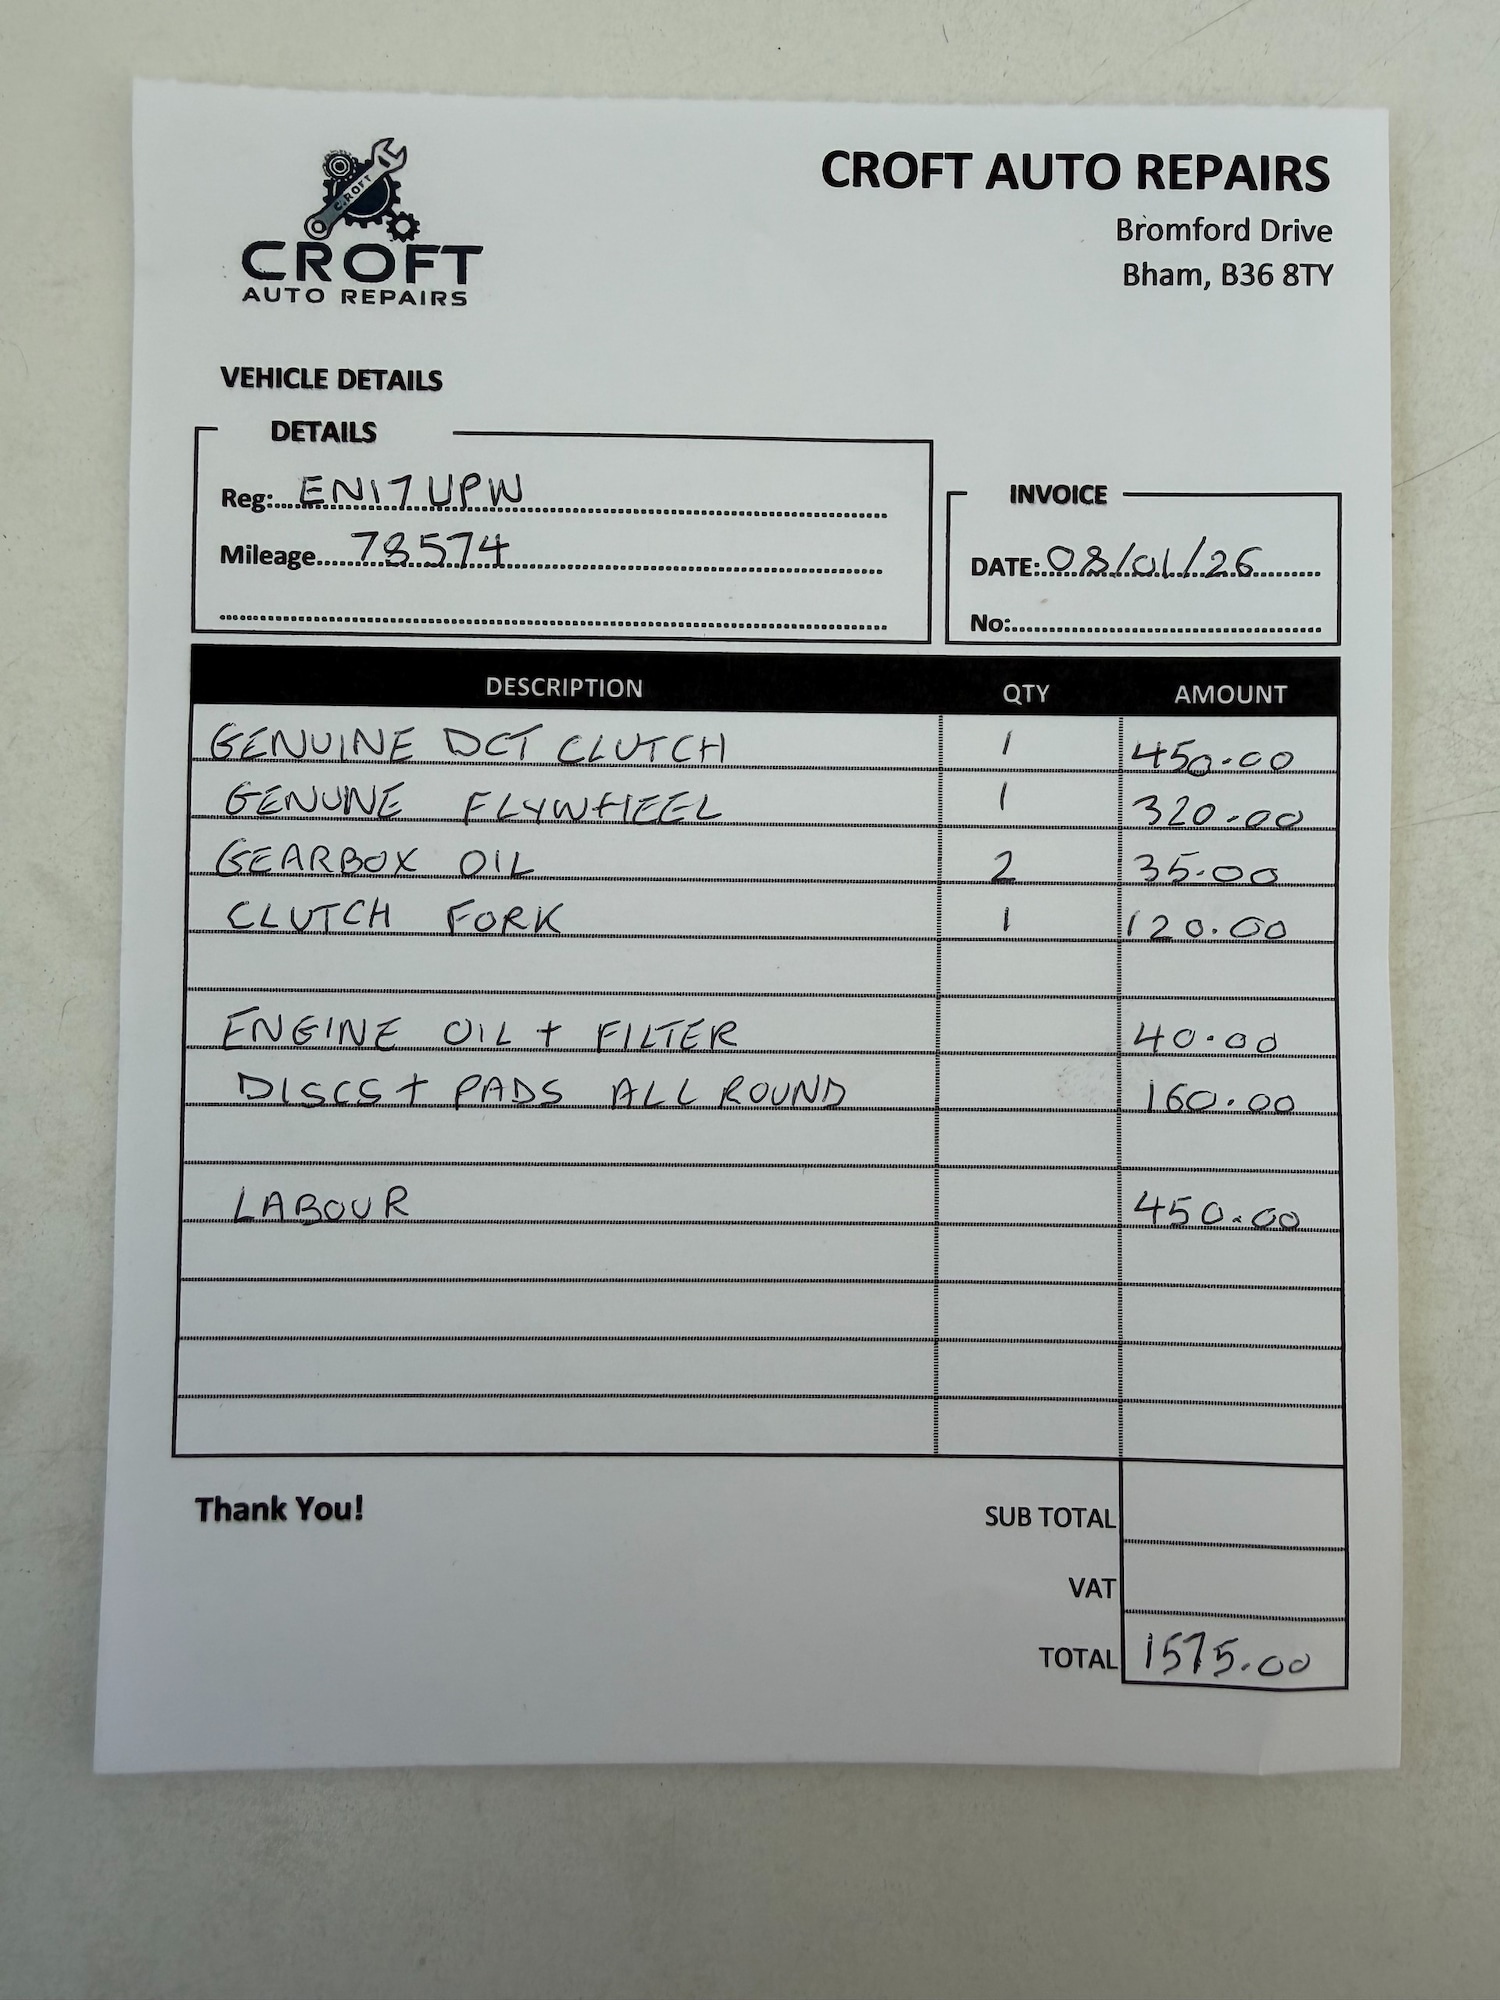 CROFT
CROFT
AUTO REPAIRS
CROFT AUTO REPAIRS
Bromford Drive
Bham, B36 8TY
VEHICLE DETAILS
DETAILS
Reg: EN17 UPW
Mileage 78574
INVOICE
DATE: 08/01/26
No:
DESCRIPTION QTY AMOUNT
GENUINE DCT CLUTCH 1 450.00
GENUNE FLYWHEEL 1 320.00
GEARBOX OIL 2 35.00
CLUTCH FORK 1 120.00
ENGINE OIL + FILTER 40.00
DISCS + PADS ALL ROUND 160.00
LABOUR 450.00
Thank You!
SUB TOTAL
VAT
TOTAL 1575.00